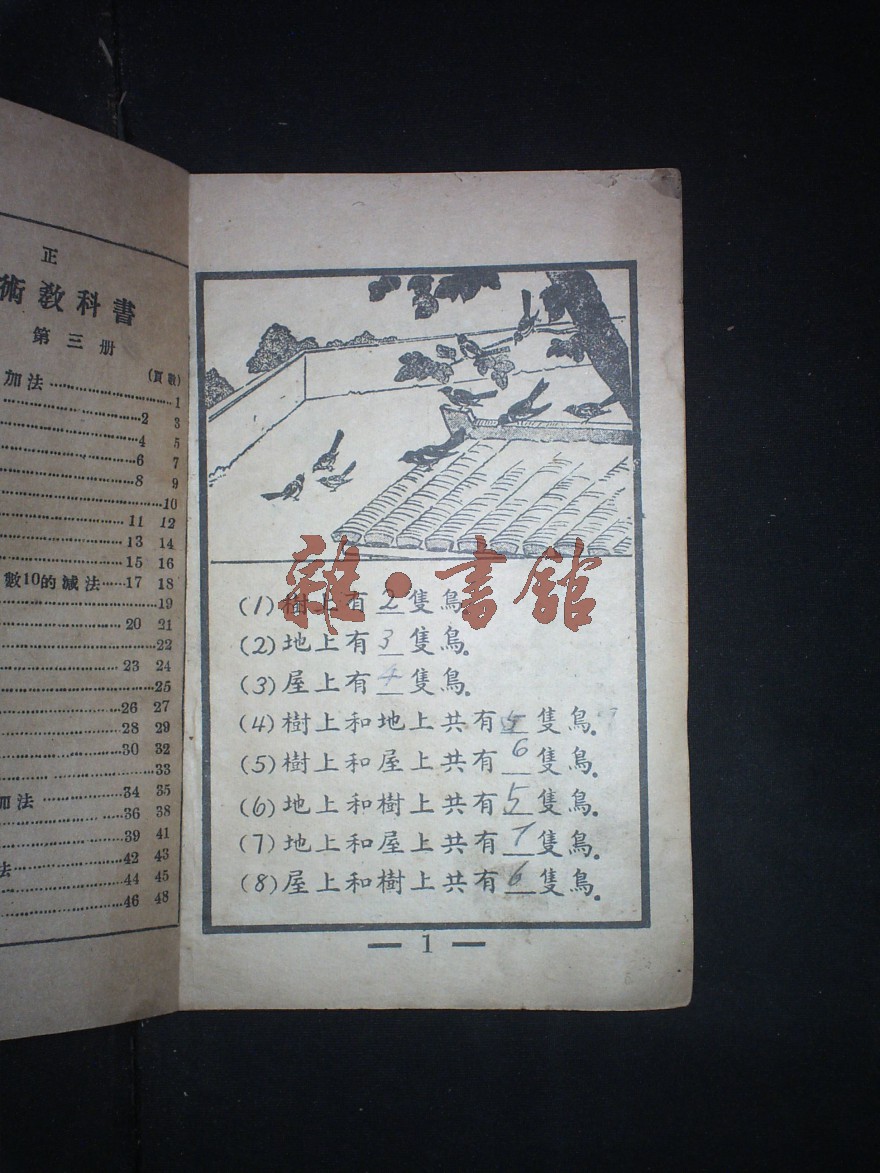 正
術教科書
第三册
(頁數)
加法……1
……2 3
……4 5
……6 7
……8 9
……10
……11 12
……13 14
……15 16
數10的減法……17 18
……19
……20 21
……22
……23 24
……25
……26 27
……28 29
……30 32
……33
加法……34 35
……36 38
……39 41
法……42 43
……44 45
……46 48
雜·書舘
(1)樹上有2隻鳥
(2)地上有3隻鳥.
(3)屋上有4隻鳥.
(4)樹上和地上共有5隻鳥.
(5)樹上和屋上共有6隻鳥.
(6)地上和樹上共有5隻鳥.
(7)地上和屋上共有7隻鳥.
(8)屋上和樹上共有6隻鳥.
— 1 —